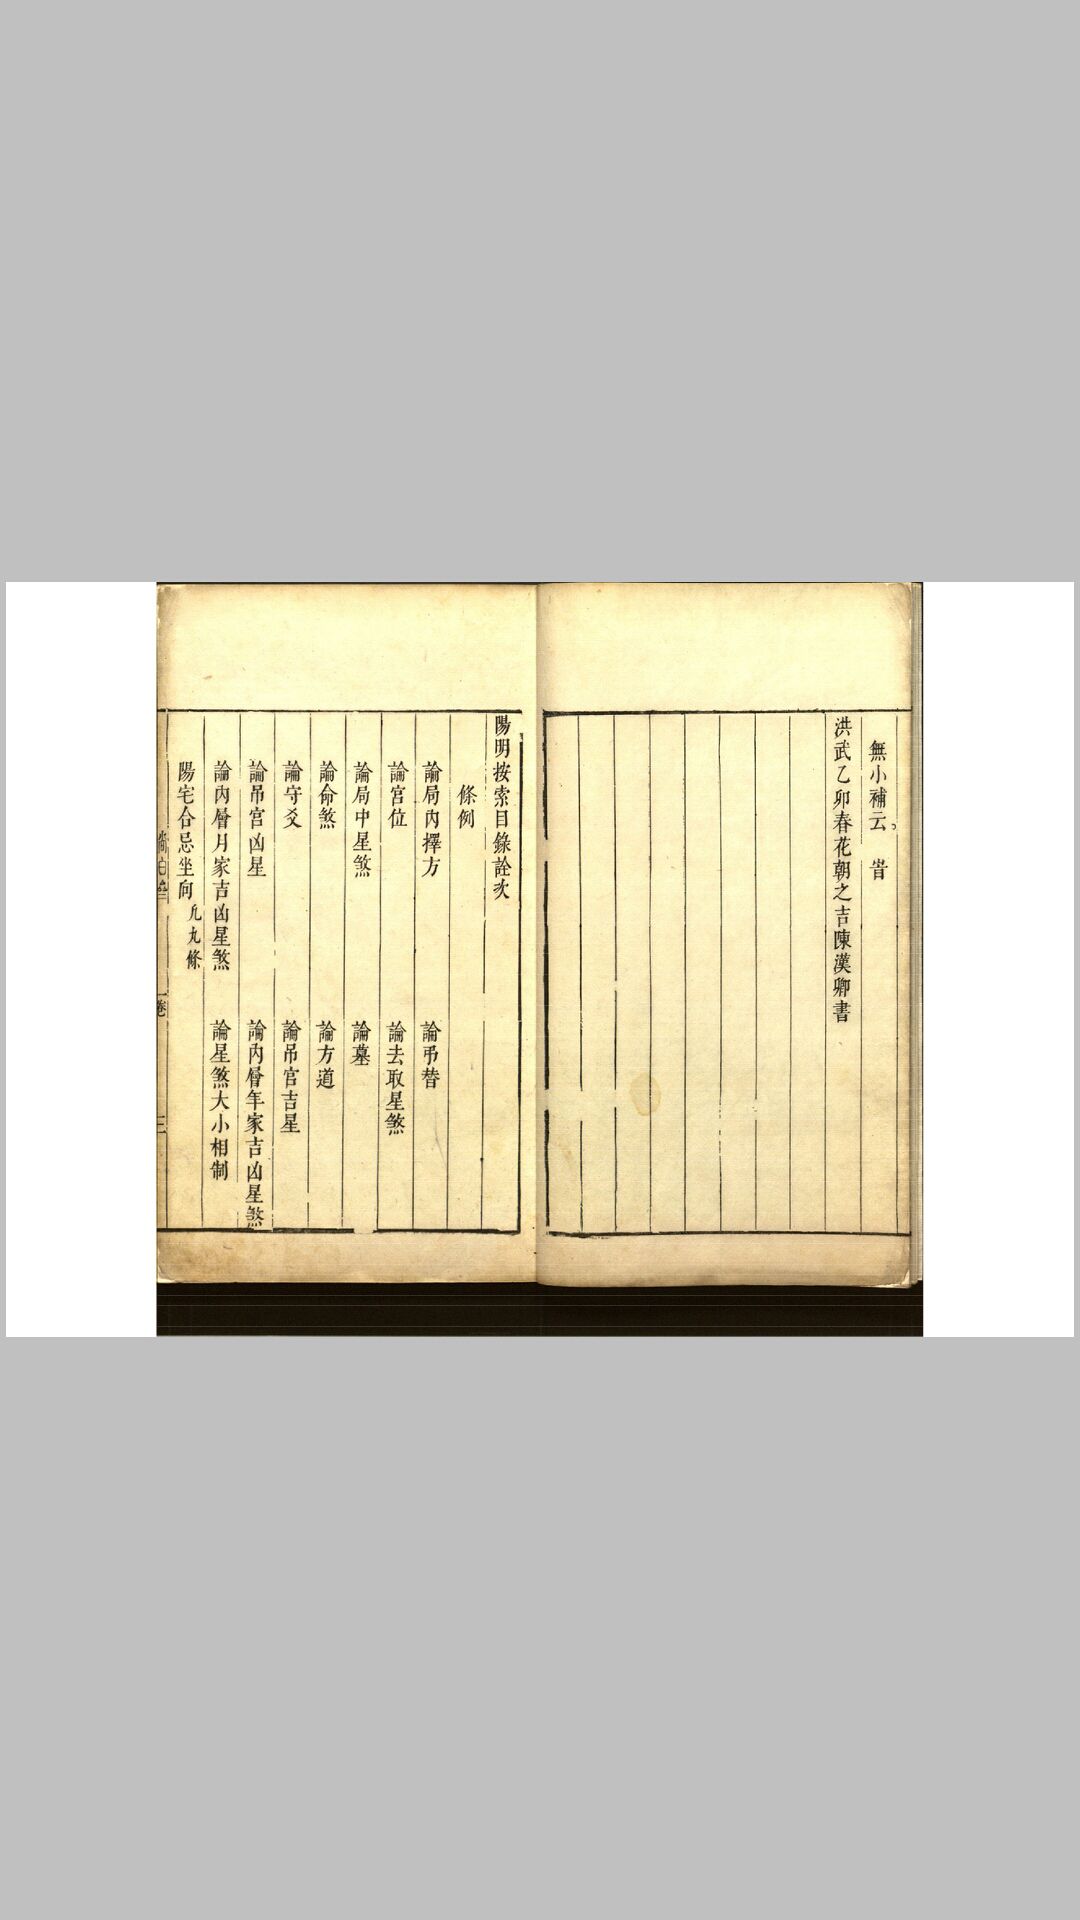 無小補云。 旹
洪武乙卯春花朝之吉陳漢卿書
陽明按索目錄詮次
條例
論局內擇方 論弔替
論宮位 論去取星煞
論局中星煞 論墓
論命煞 論方道
論守爻 論吊宮吉星
論吊宮凶星 論內層年家吉凶星煞
論內層月家吉凶星煞 論星煞大小相制
陽宅合忌坐向 凡九條
一卷 三